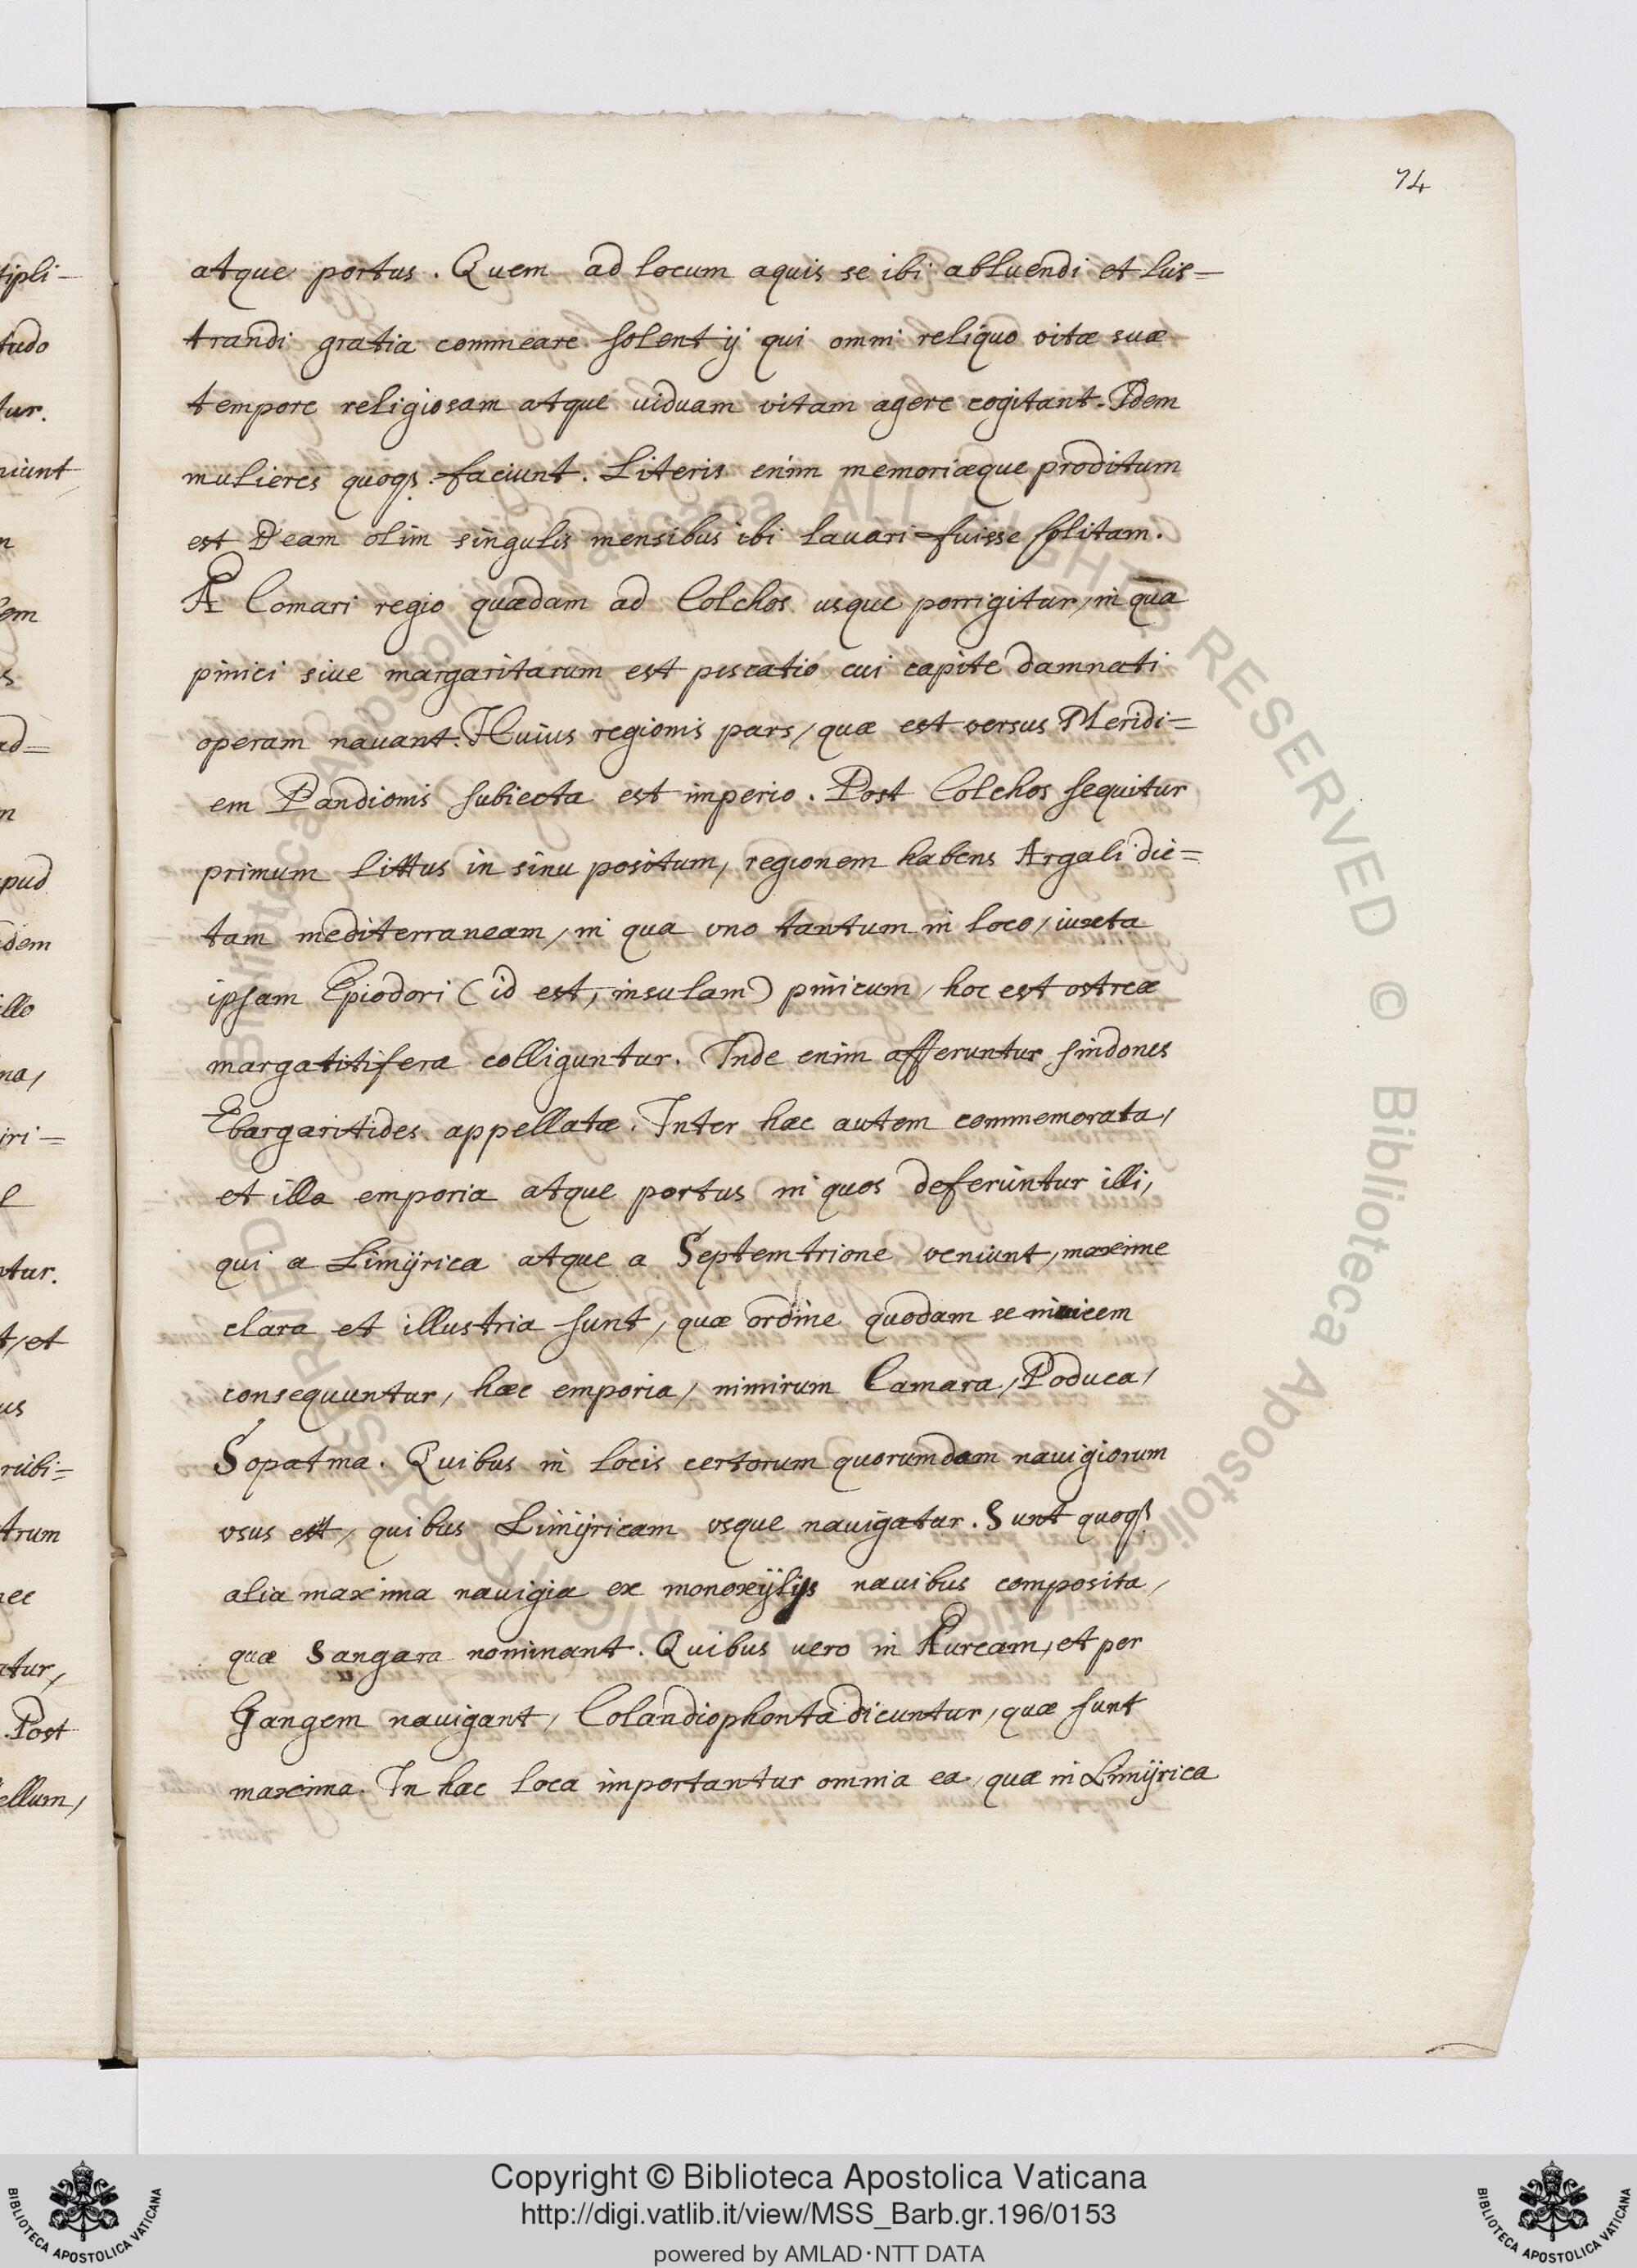 74
atque portus. Quem ad locum aquis se ibi abluendi et lus=
trandi gratia commeare solent ij qui omni reliquo vitæ suæ
tempore religiosam atque uiduam vitam agere cogitant. Idem
mulieres quoqꝫ faciunt. Literis enim memoriæque proditum
est Deam olim singulis mensibus ibi lauari fuisse solitam.
A Comari regio quædam ad Colchos usque porrigitur, in qua
pinici siue margaritarum est piscatio, cui capite damnati
operam nauant. Huius regionis pars, quæ est versus Meridi=
em Pandionis subiecta est imperio. Post Colchos sequitur
primum littus in sinu positum, regionem habens Argali dic=
tam mediterraneam, in qua vno tantum in loco, iuxta
ipsam Epiodori (id est, insulam) pinicum, hoc est ostreæ
margatitiferæ colliguntur. Inde enim afferuntur sindones
Ebargaritides appellatæ. Inter hæc autem commemorata,
et illa emporia atque portus in quos deferuntur illi,
qui a Limijrica atque a Septemtrione veniunt, maxime
clara et illustria sunt, quæ ordine quodam se inuicem
consequuntur, hæc emporia, nimirum Camara, Poduca,
Sopatma. Quibus in locis certorum quorumdam nauigiorum
vsus est, quibus Limijricam vsque nauigatur. Sunt quoqꝫ
alia maxima nauigia ex monoxijlijs nauibus composita,
quæ Sangara nominant. Quibus uero in Auream, et per
Gangem nauigant, Colandiophonta dicuntur, quæ sunt
maxima. In hæc loca importantur omnia ea, quæ in Limijrica
tipli-
tudo
tur.
niunt
n
em
s
ad=
n
pud
dem
illo
na,
iri=
l
ntur.
t, et
us
rubi=
trum
nec
atur,
Post
ellum,
© Biblioteca Apostolica Vaticana ALL RIGHTS RESERVED © Biblioteca Apostolica Vaticana ALL RIGHTS RESERVED
Copyright © Biblioteca Apostolica Vaticana
http://digi.vatlib.it/view/MSS_Barb.gr.196/0153
powered by AMLAD·NTT DATA
BIBLIOTECA APOSTOLICA VATICANA
BIBLIOTECA APOSTOLICA VATICANA